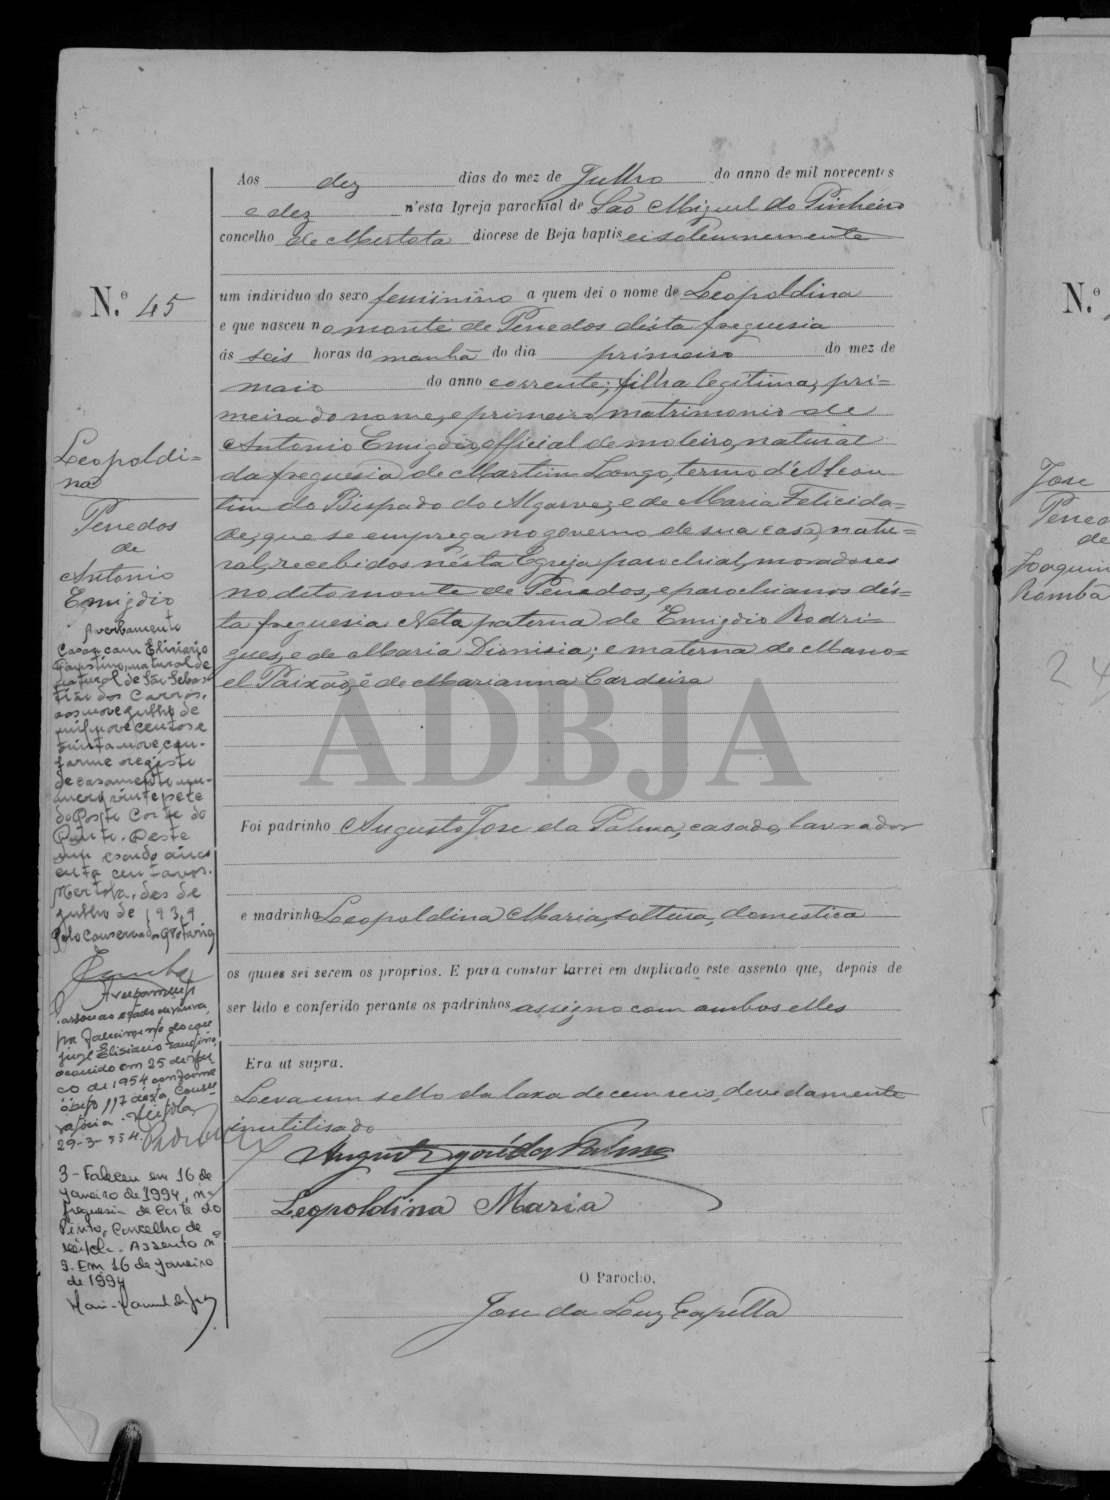 Aos dez dias do mez de Julho do anno de mil novecentos
e dez n'esta Igreja parochial de São Miguel do Pinheiro
concelho de Mertola diocese de Beja baptisei solemnemente
N.º 45
um individuo do sexo feminino a quem dei o nome de Leopoldina
e que nasceu no monte de Penedos désta freguesia
ás seis horas da manhã do dia primeiro do mez de
maio do anno corrente; filha legitima, pri=
meira do nome, e primeiro matrimonio de
Antonio Emigdio, official de moleiro, natural
da freguesia de Martim Longo, termo d'Alcou
tim do Bispado do Algarve; e de Maria Felicida=
de, que se emprega no governo de sua casa, natu=
ral, recebidos nésta Egreja parochial, moradores
no dito monte de Penedos, e parochianos dés=
ta freguesia Neta paterna de Emigdio Rodri=
gues, e de Maria Dionisia; e materna de Mano=
el Paixão, e de Marianna Cardeira
Foi padrinho Augusto Jose da Palma, casado, lavrador
e madrinha Leopoldina Maria, solteira, domestica
os quaes sei serem os proprios. E para constar lavrei em duplicado este assento que, depois de
ser lido e conferido perante os padrinhos assigno com ambos elles
Era ut supra.
Leva um sello da taxa de cem reis, devidamente
inutilisado
Augusto José da Palma
Leopoldina Maria
O Parocho,
Jose da Luz Capella
Leopoldi=
na
Penedos
de
Antonio
Emigdio
Averbamento
Casou com Elisiario
Faustino, natural de
natural de São Sebas
tião dos Carros,
aos nove Julho de
mil nove centos e
trinta e nove, con-
forme registo
de casamento nu-
mero vinte e sete
do Posto Corte do
Pinto. Deste
um escudo cinco
enta centavos.
Mertola, dez de
Julho de 1939
Pelo Conservador, o Notario
Averbamento
Passou ao estado de viuva
por falecimento do con
juge Elisiario Faustino
ocorrido em 25 de
de 1954 conforme
óbito 117 désta Conser
vatória. Mértola,
29-3-954.
3 - Faleceu em 16 de
Janeiro de 1994, na
freguesia de Corte do
Pinto, Concelho de
Mértola. Assento nº
9. Em 16 de Janeiro
de 1994
ADBJA
N.º
Jose
Penedos
de
Joaquim
Romba
24